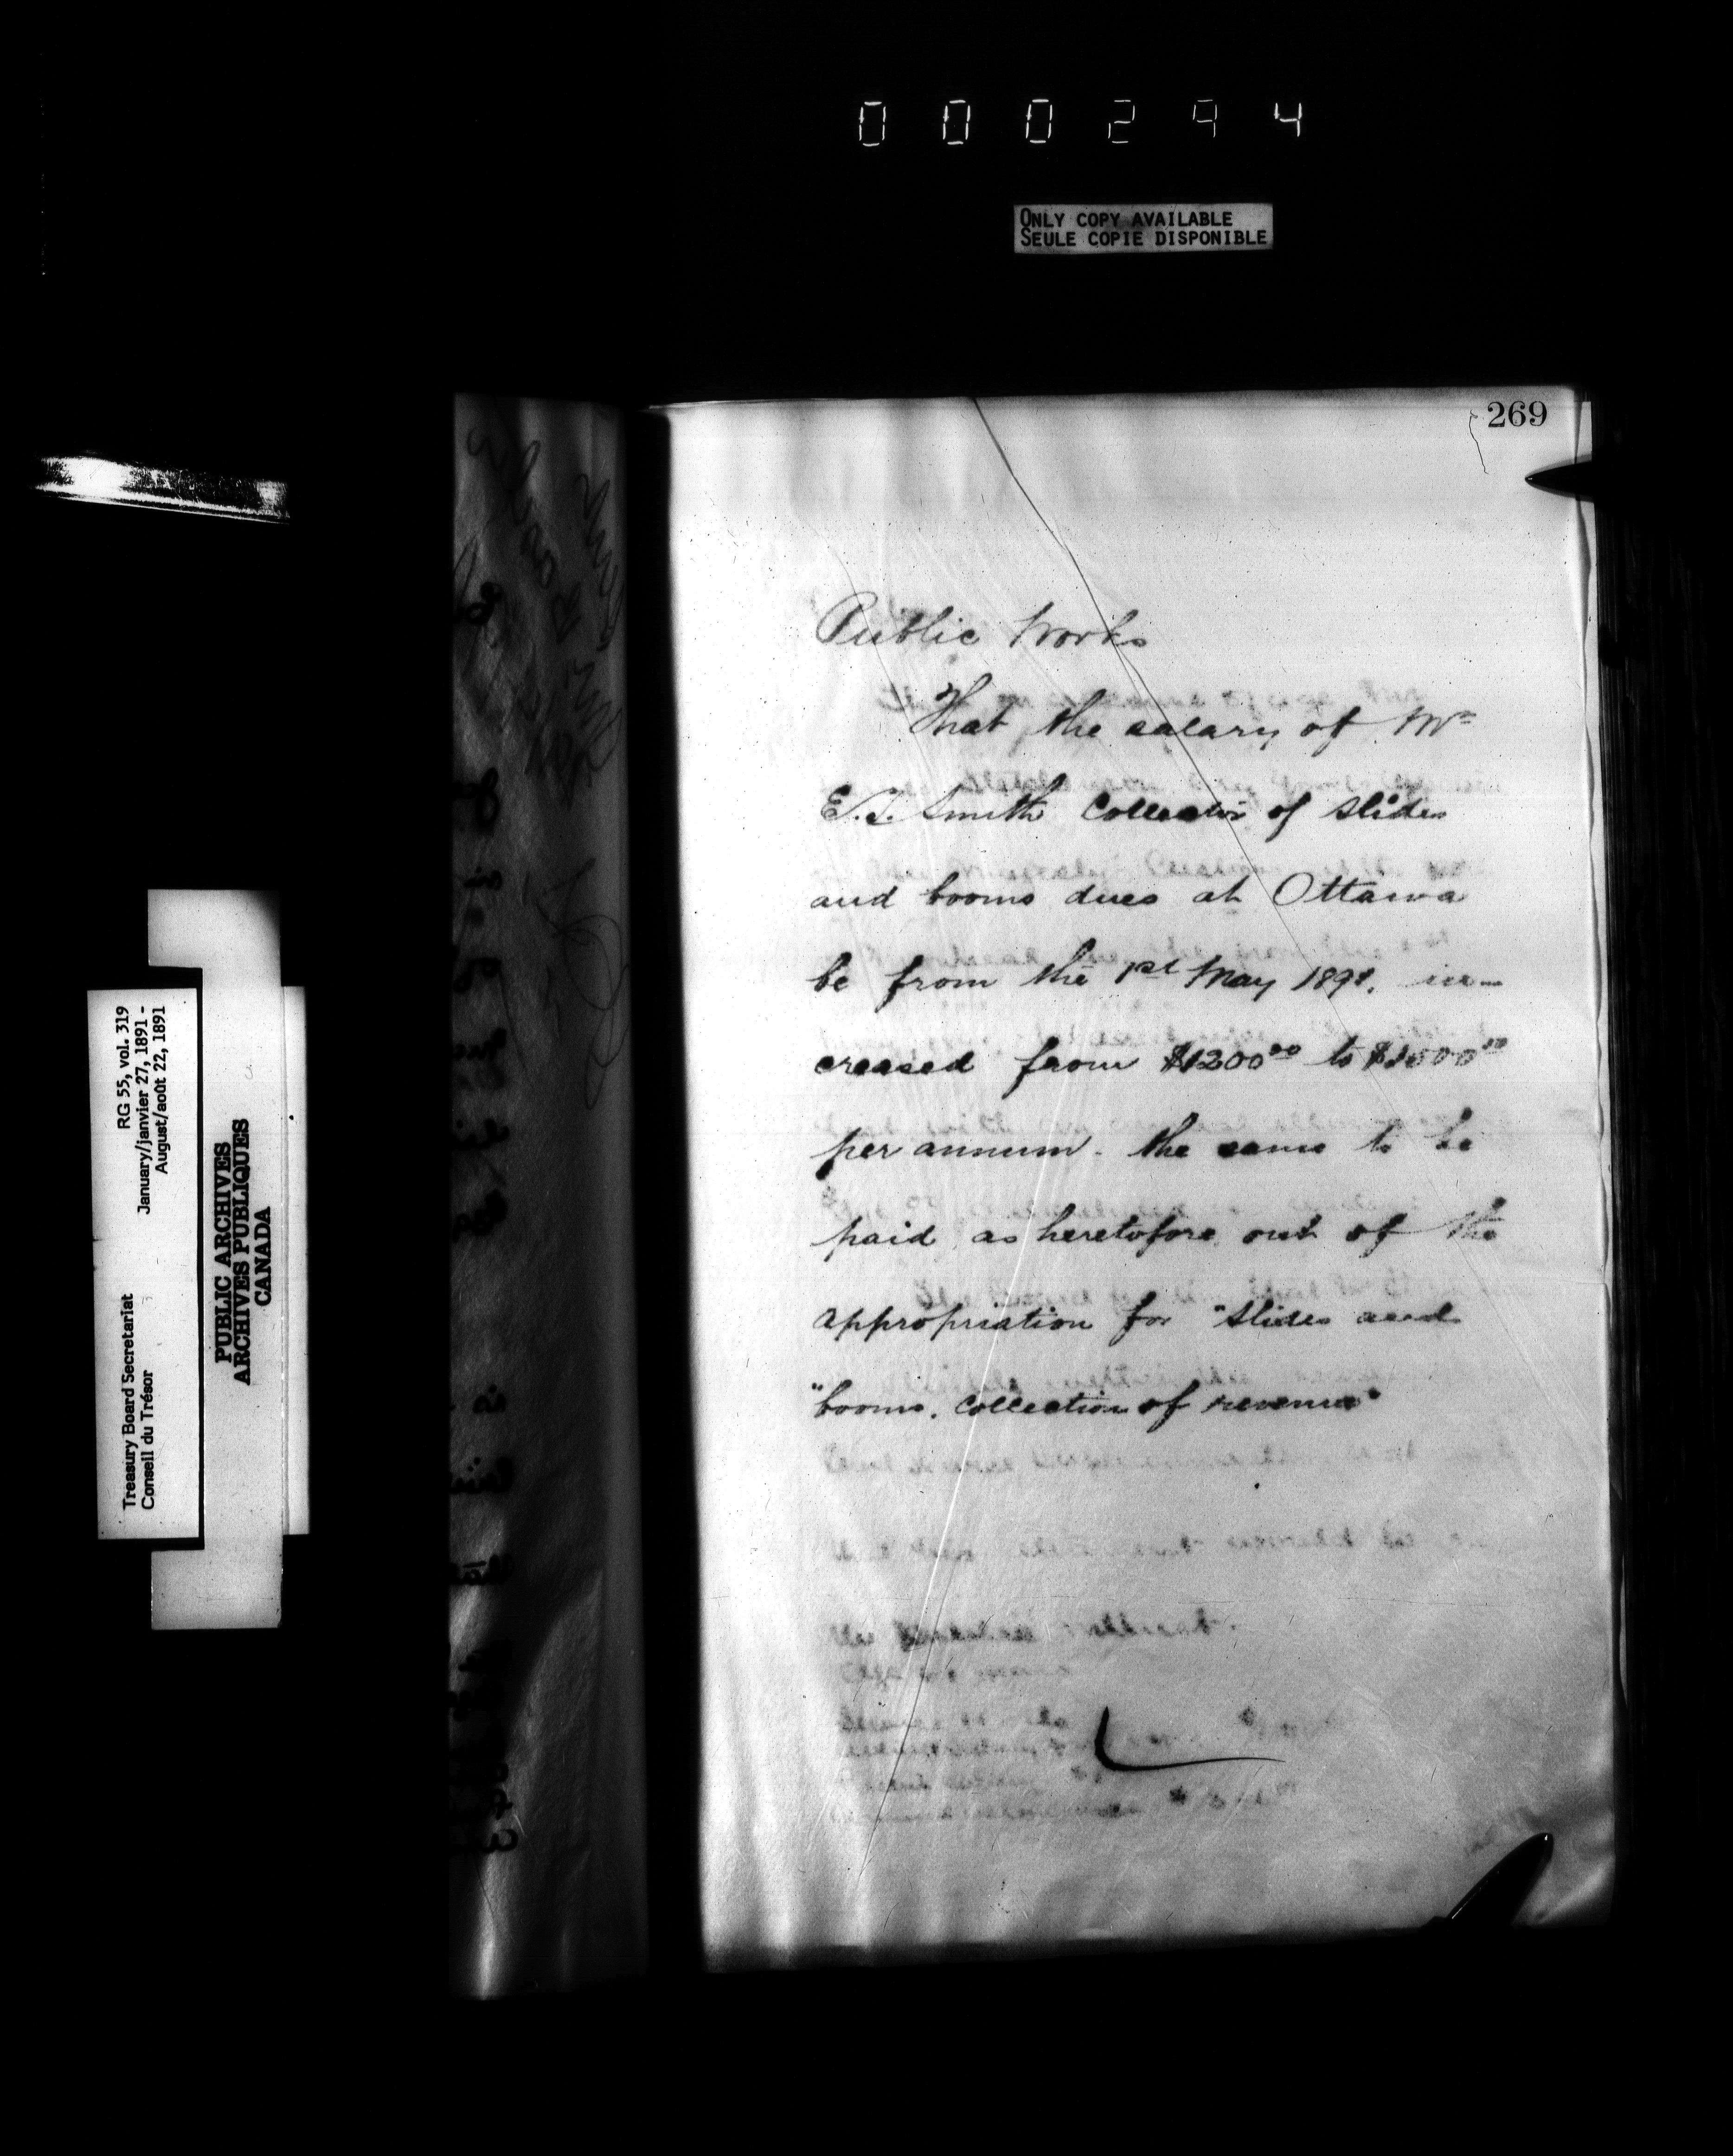 000294
ONLY COPY AVAILABLE
SEULE COPIE DISPONIBLE
269
Public Works
That the salary of Mr
E.T. Smith Collector of slides
and booms dues at Ottawa
be from the 1st May 1891. in-
creased from $1200.00 to
per annum. the same to be
paid, as heretofore, out of the
appropriation for "slides and
"booms. Collection of revenue"
RG 55, vol. 319
January/janvier 27, 1891 -
August/août 22, 1891
Treasury Board Secretariat
Conseil du Trésor
PUBLIC ARCHIVES
ARCHIVES PUBLIQUES
CANADA